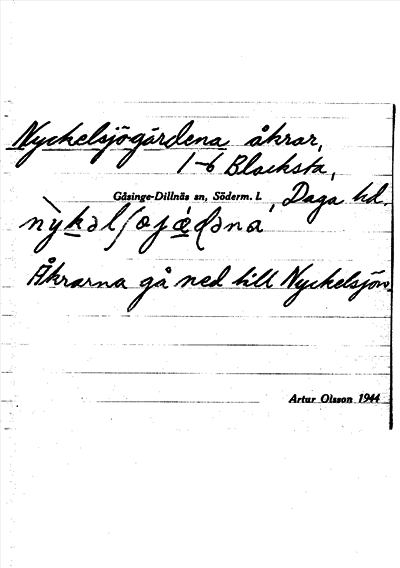 Nyckelsjögärdena åkrar,
1-6 Blacksta,
Gåsinge-Dillnäs sn, Söderm. l. Daga hd.
Åkrarna gå ned till Nyckelsjön.
Artur Olsson 1944